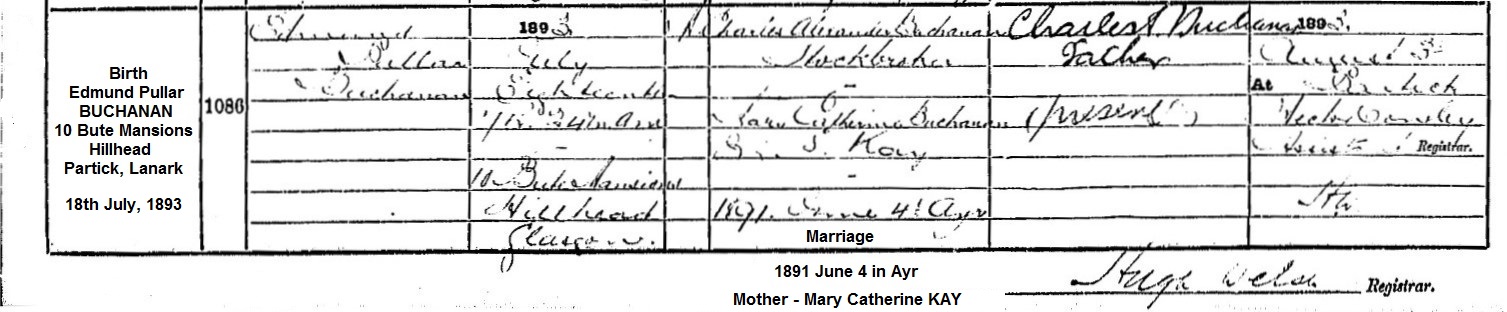 Birth
Edmund Pullar
BUCHANAN
10 Bute Mansions
Hillhead
Partick, Lanark
18th July, 1893
1086
Edmund
Pullar
Buchanan
1893
July
Eighteenth
10 Bute Mansions
Hillhead
Glasgow.
Charles Alexander Buchanan
Stockbroker
Mary Catherine Buchanan
M. S. Kay
1891. June 4th Ayr
Marriage
1891 June 4 in Ayr
Mother - Mary Catherine KAY
Charles A Buchanan
Father
(present)
1893.
August 
At Partick
Assist Registrar.
Hugh Welsh Registrar.